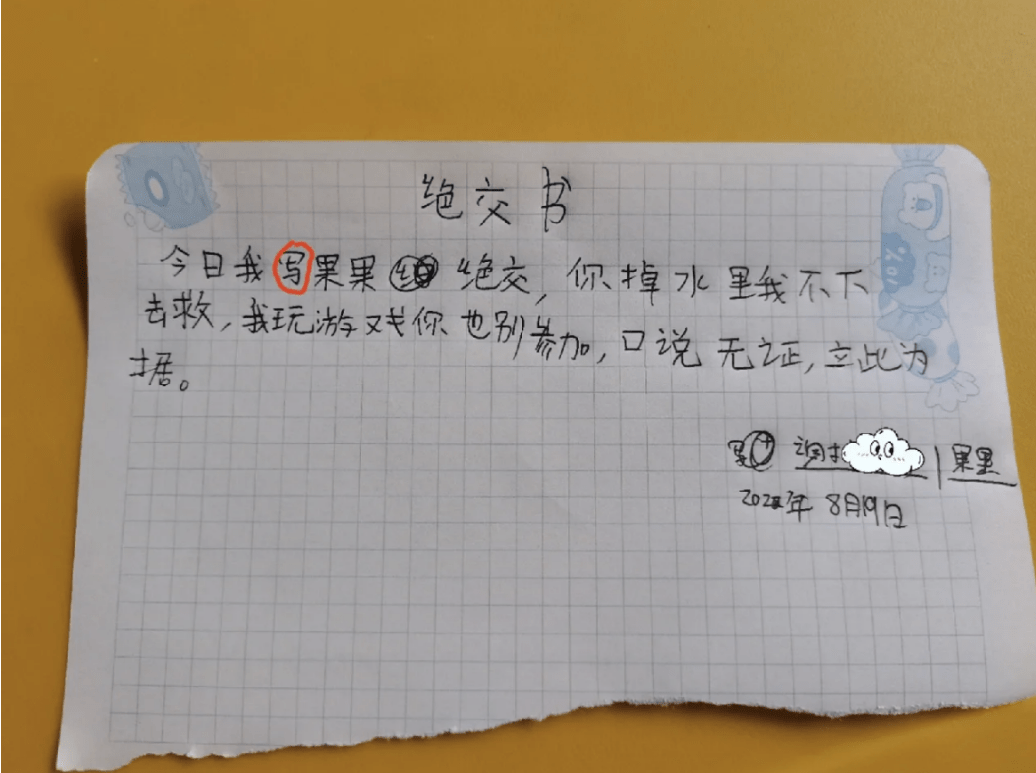 绝交书
今日我写果果 绝交，你掉水里我不下
去救，我玩游戏你也别参加，口说无证，立此为
据。
果果
8月19日